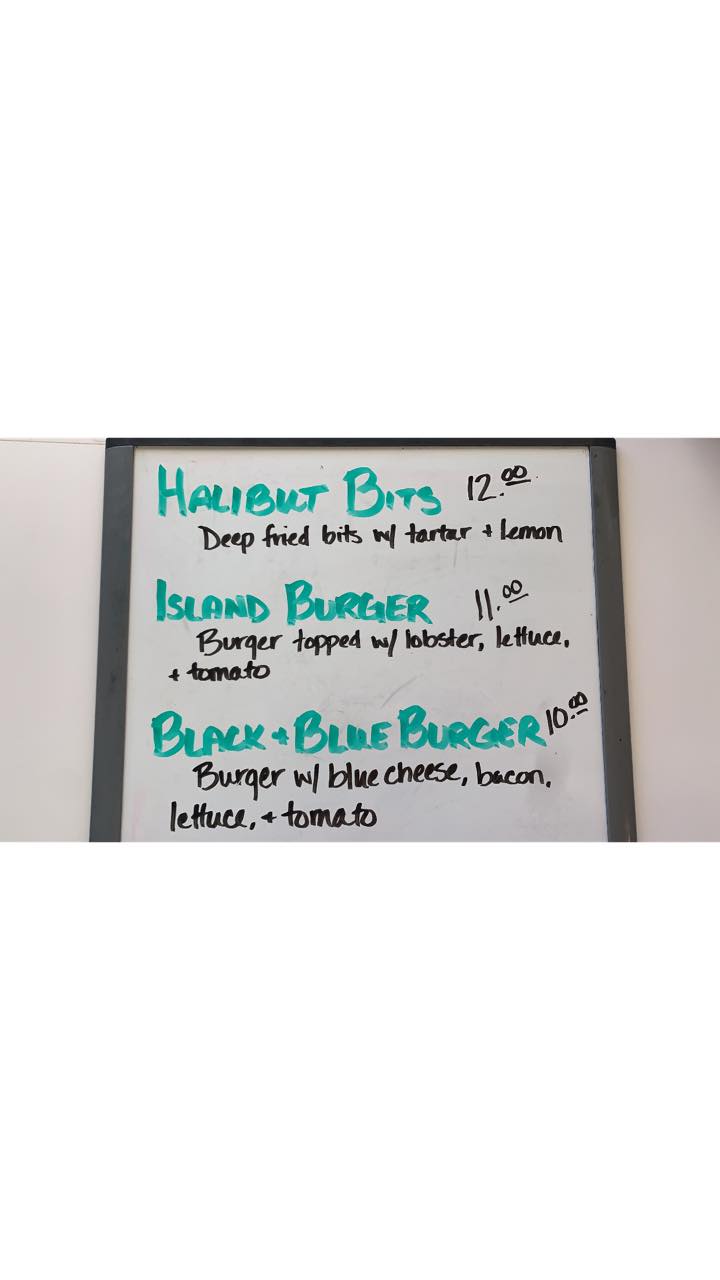 HALIBUT BITS 12.00
Deep fried bits w/ tartar + lemon
ISLAND BURGER 11.00
Burger topped w/ lobster, lettuce,
+ tomato
BLACK + BLUE BURGER 10.00
Burger w/ blue cheese, bacon,
lettuce, + tomato